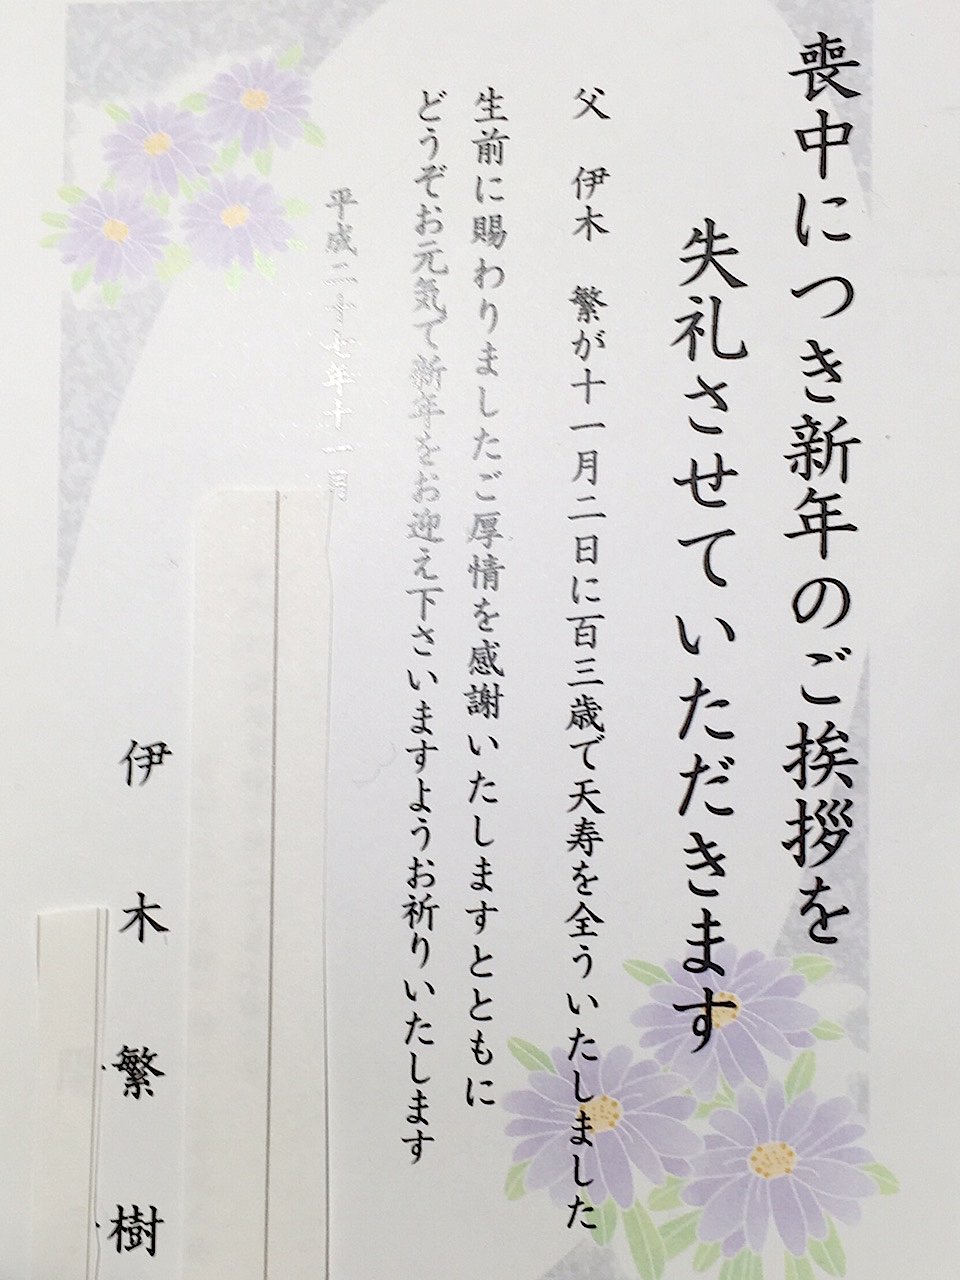 喪中につき新年のご挨拶を
失礼させていただきます
父　伊木　繁が十一月二日に百三歳で天寿を全ういたしました
生前に賜わりましたご厚情を感謝いたしますとともに
どうぞお元気で新年をお迎え下さいますようお祈りいたします
平成二十七年十一月
伊木繁樹